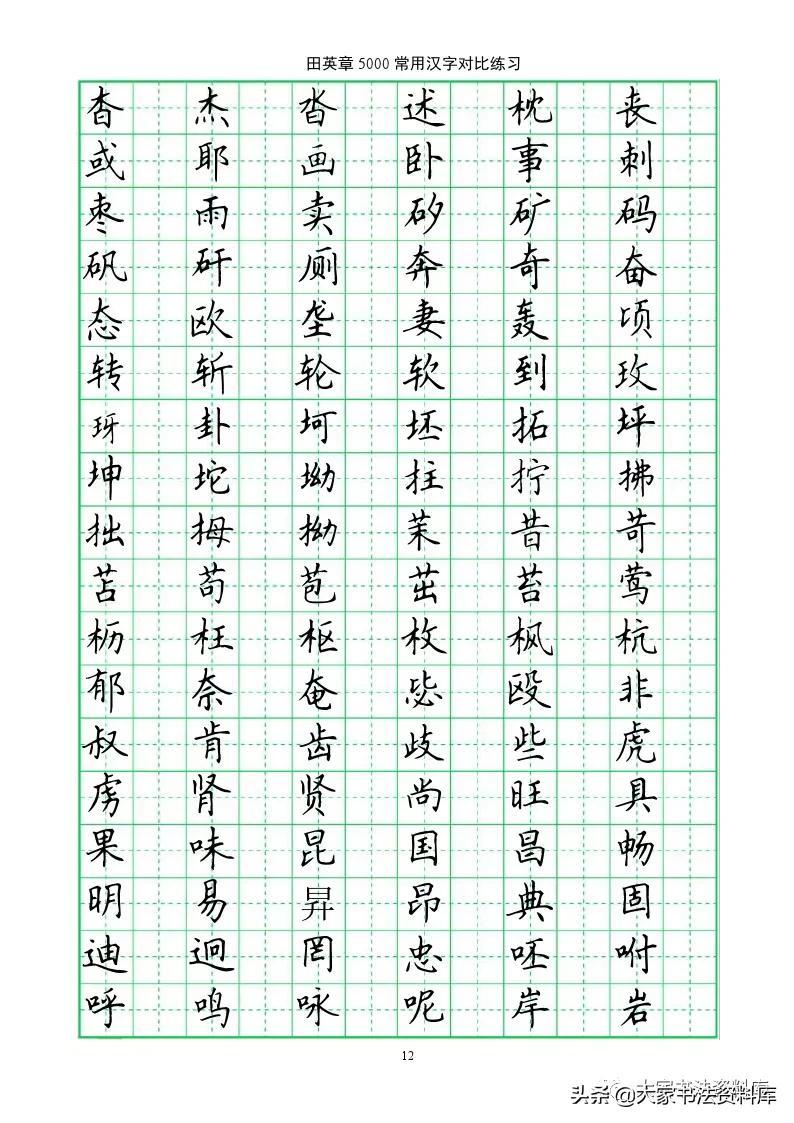 田英章 5000 常用汉字对比练习
杳 杰 沓 述 枕 丧
或 耶 画 卧 事 刺
枣 雨 卖 矽 矿 码
矾 矸 厕 奔 奇 奋
态 欧 垄 妻 轰 顷
转 斩 轮 软 到 玫
玡 卦 坷 坯 拓 坪
坤 坨 坳 拄 拧 拂
拙 拇 拗 茉 昔 苛
苫 苟 苞 茁 苔 莺
枥 枉 枢 枚 枫 杭
郁 奈 奄 毖 殴 非
叔 肯 齿 歧 些 虎
虏 肾 贤 尚 旺 具
果 味 昆 国 昌 畅
明 易 昇 昂 典 固
迪 迥 罔 忠 呸 咐
呼 鸣 咏 呢 岸 岩
12
大家书法资料库
头条@大家书法资料库